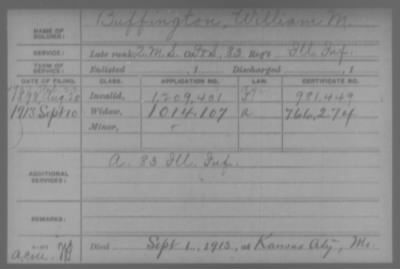 NAME OF SOLDIER: Buffington, William M.
SERVICE: Late rank, Q.M.S. Co. F&S, 83 Reg't Ill Inf.
TERM OF SERVICE: Enlisted , 1 Discharged , 1
DATE OF FILING. CLASS. APPLICATION NO. LAW. CERTIFICATE NO.
1898 Aug 20 Invalid, 1,209,401 981,449
1913 Sept 10 Widow, 1014,107 766,274
Minor,
ADDITIONAL SERVICES: A. 83 Ill. Inf.
REMARKS:
Died Sept 1, 1913, at Kansas City, Mo.